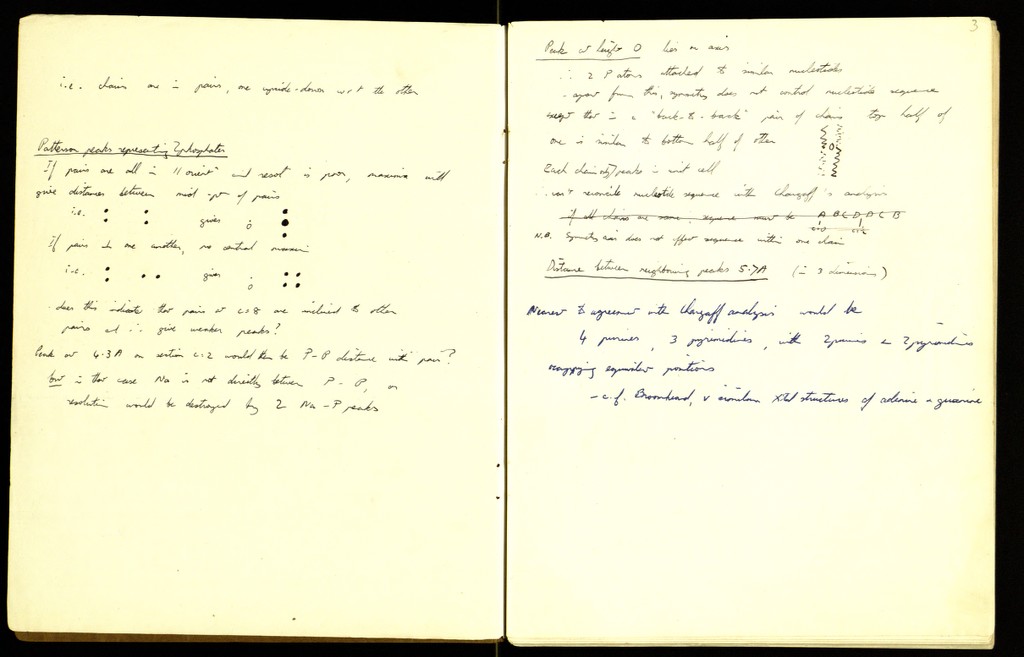 i.e. chains are in pairs, one upside-down w.r.t the other
Patterson peaks representing 2 phosphates
If pairs are all in // orient and resol is poor, maxima will
give distances between mid-pt of pairs
i.e. gives
If pairs in one another, no central maxima
i.e. gives
does this indicate that pairs at c=8 are inclined to other
pairs and ∴ give weaker peaks?
Peak at 4.3A on section c=2 would then be P-P distance with pair?
but in that case Na is not directly between P-P, or
resolution would be destroyed by 2 Na-P peaks
3
Peak at height 0 lies on axis
∴ 2 P atoms attached to similar nucleotides
apart from this, symmetry does not control nucleotide sequence
except that in a "back-to-back" pair of chains top half of
one is similar to bottom half of other
Each in unit cell
∴ can't reconcile nucleotide sequence with Chargaff's analysis
if all chains are same, sequence must be A B C D, D C B
N.B. Symmetry axis does not affect sequence within one chain
Distance between neighbouring peaks 5.7A (in 3 dimensions)
Nearest to agreement with Chargaff analysis would be
4 purines, 3 pyrimidines, with 2 purines + 2 pyrimidines
occupying equivalent positions
- c.f. Broomhead, v similar Xtal structures of adenine + guanine